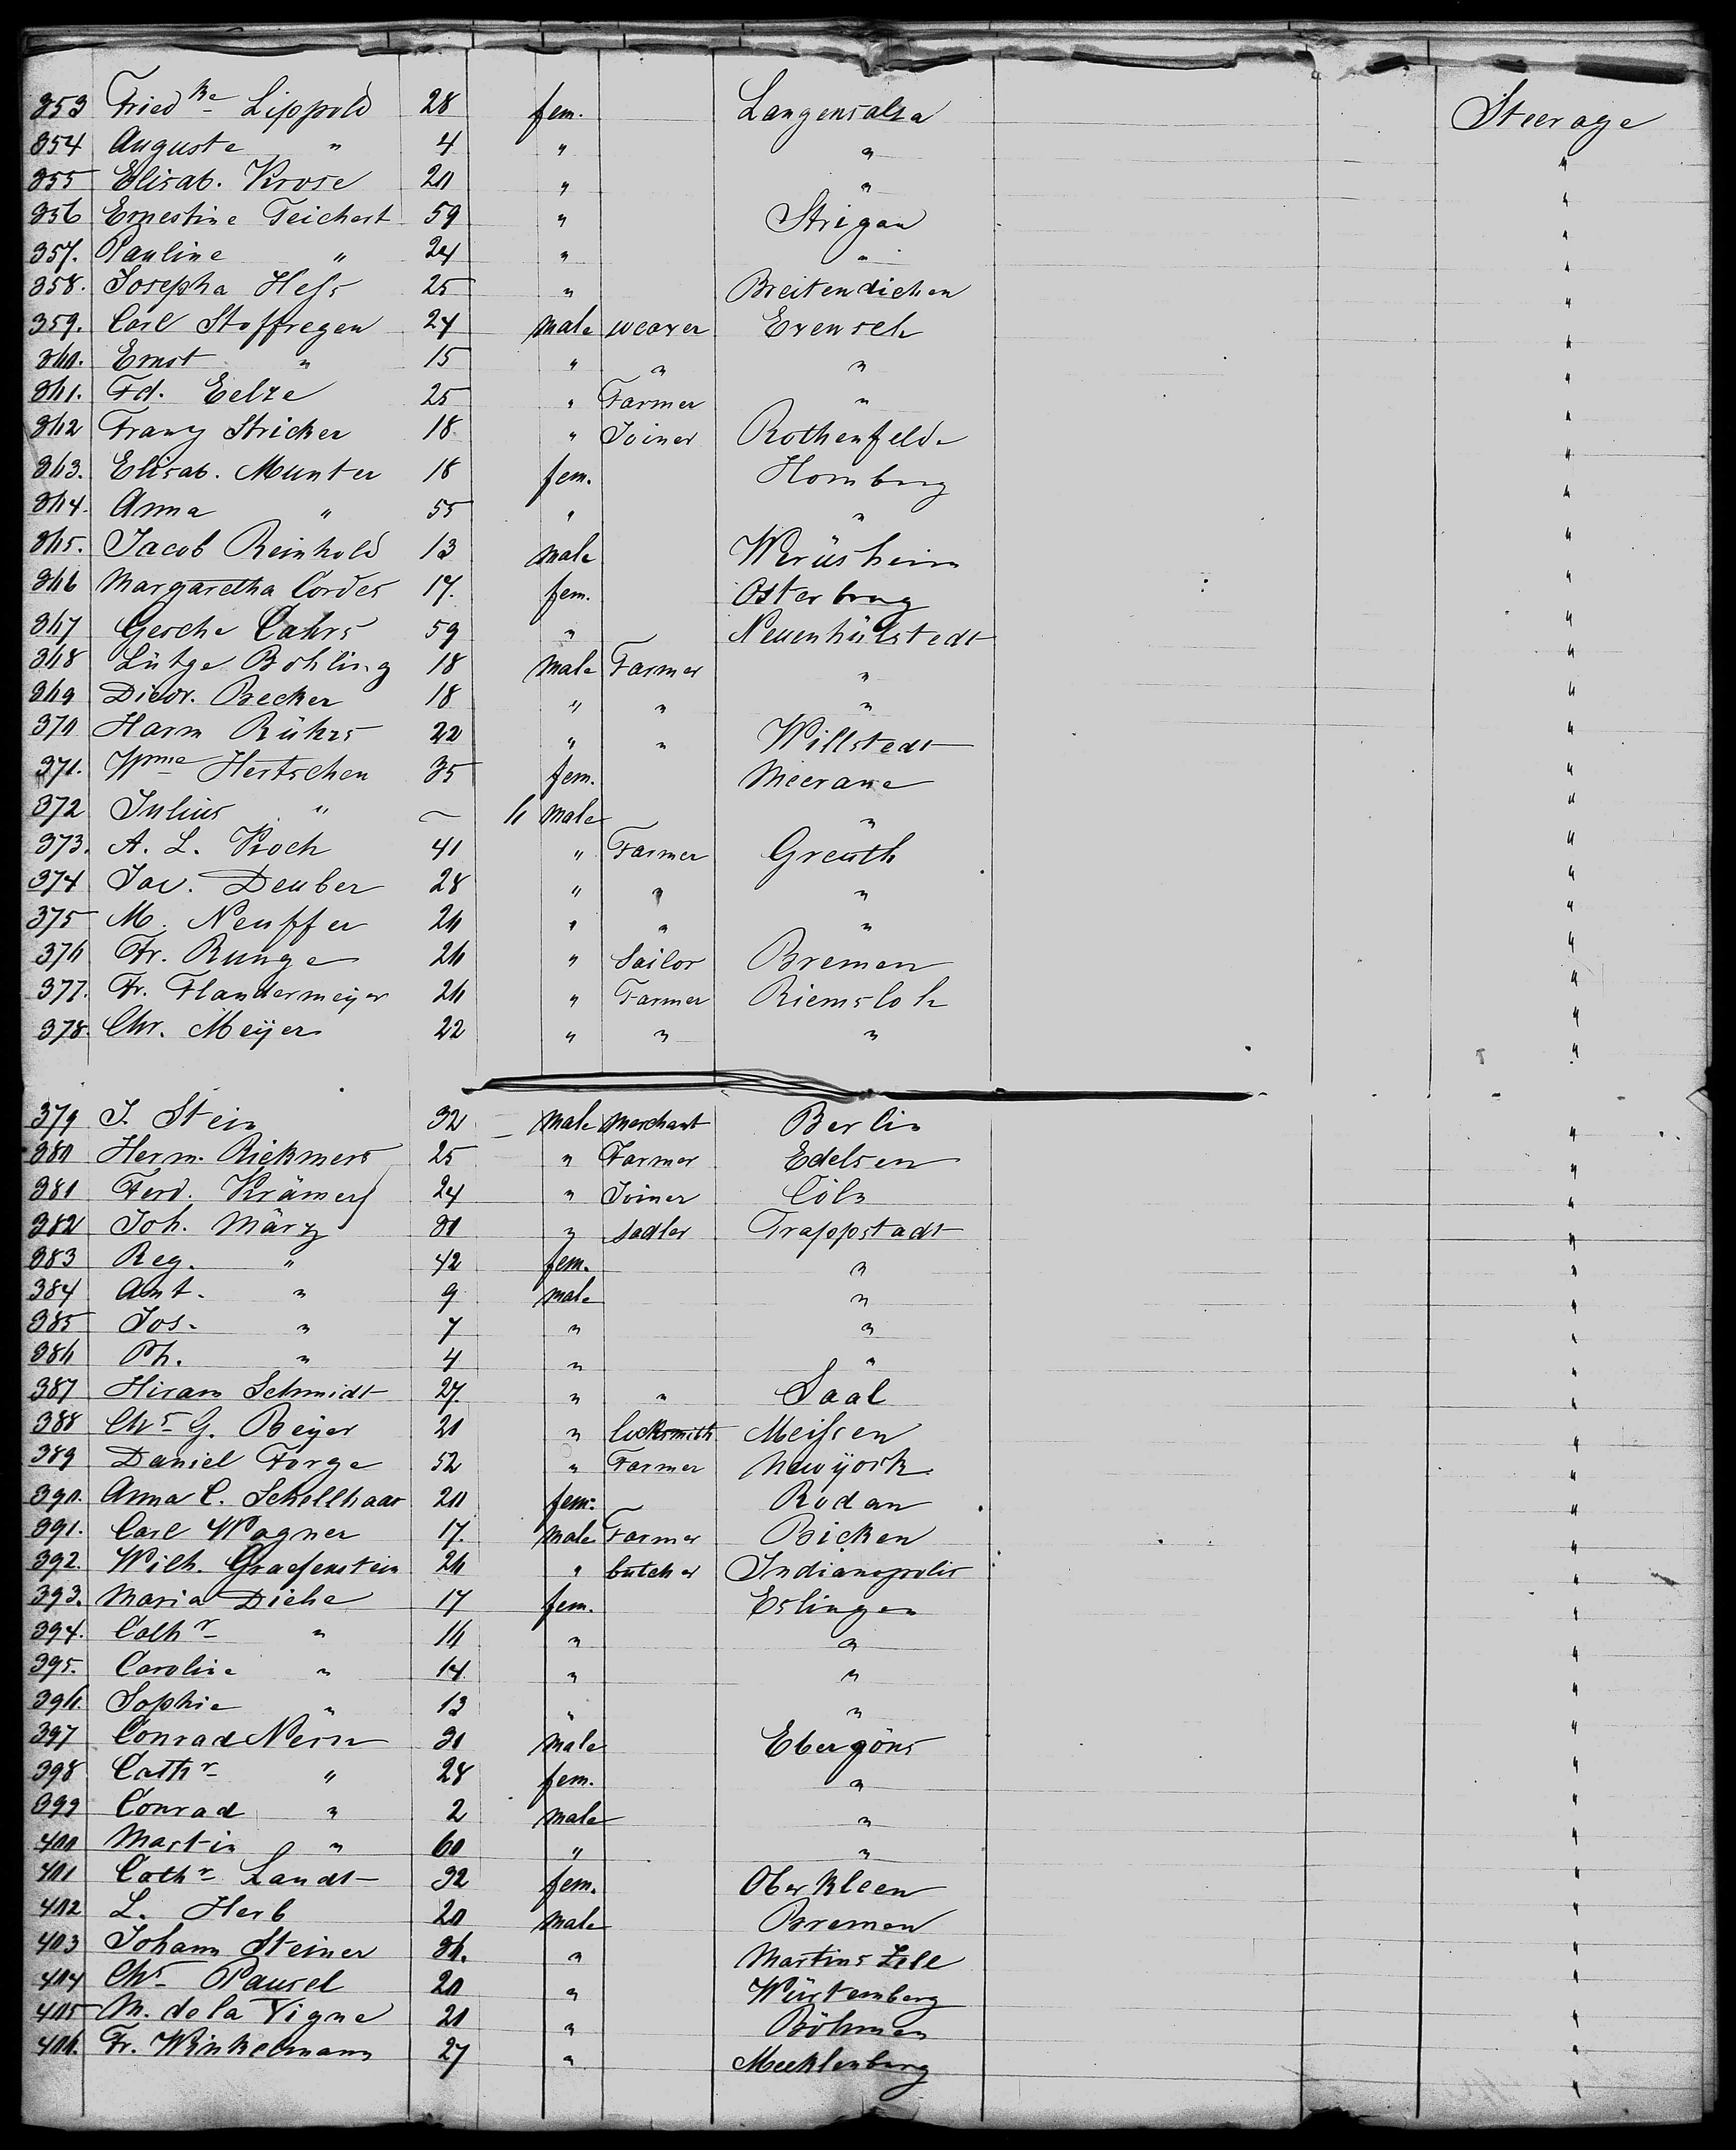 353 Fried ke Lippold 28 fem. Langensalza Steerage
354 Auguste " 4 " " "
355 Elisab. Krose 20 " " "
356 Ernestine Teichert 59 " Strigau "
357. Pauline " 24 " " "
358. Josepha Hess 25 " Breitendichen "
359. Carl Stoffregen 24 male weaver Evensen "
360. Ernst " 15 " " " "
361. Fd. Eelze 25 " Farmer " "
362 Franz Stricker 18 " Joiner Rothenfelde "
363. Elisab. Munter 18 fem. Homburg "
364. Anna " 55 " " "
365. Jacob Reinhold 13 male "
366 Margaretha Cordes 17. fem. Osterbrug "
367 Gesche Cahrs 59 " Neuenhülstedt "
368 Lütge Bohling 18 male Farmer " "
369 Diedr. Becker 18 " " " "
370 Harm Rührs 22 " " Willstedt "
371. Hertschen 35 fem. Meerane "
372 Julius " ~ 6 male " "
373. A. L. Koch 41 " Farmer Greuth "
374 Jac. Deuber 28 " " " "
375 M. Neuffer 26 " " " "
376 Fr. Runge 26 " Sailor Bremen "
377. Fr. Flandermeyer 26 " Farmer Riemsloh "
378. Chr. Meijer 22 " " " "
379 J. Stein 32 male Merchant Berlin "
380 Herm. Rickmers 25 " Farmer Edelsen "
381 Ferd. Krämer 24 " Joiner Cöln "
382 Joh. März 31 " sadler Trappstadt "
383 Reg. " 42 fem. " "
384 Ant. " 9 male " "
385 Jos. " 7 " " "
386 Ph. " 4 " " "
387 Hiram Schmidt 27. " " Saal "
388 Chr G. Beyer 21 " locksmith Meissen "
389 Daniel Forge 52 " Farmer Newyork "
390. Anna C. Schellhaas 20 fem. Rodau "
391. Carl Wagner 17. male Farmer Bicken "
392. Wilh. Graefenstein 26 " butcher Indianapolis "
393. Maria Diehe 17 fem. Eslingen "
394. Cathr " 16 " " "
395. Caroline " 14 " " "
396. Sophie " 13 " " "
397 Conrad Nern 31 male Ebergöns "
398 Cathr " 28 fem. " "
399 Conrad " 2 male " "
400 Martin " 60 " " "
401 Cathr Landt 32 fem. Oberkleen "
402 L. Herb 20 male Bremen "
403 Johann Steiner 36. " Martinszell "
404 Chr Pausel 20 " Würtemberg "
405 M. de la Vigne 21 " Böhmen "
406. Fr. Winkelmann 27 " Mecklenburg "